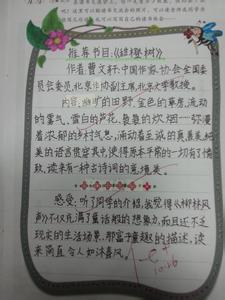 推荐书目:《红橙树》
作者:曹文轩.中国作家协会全国委
员会委员,北京作协副主席,北京大学教授。
内容:幽旷的田野,金色的草房,流动
的雾气,雪白的芦花,袅袅的炊烟一弥漫
着浓郁的乡村气息,涌动着至诚的真善美,纯
美的语言贯穿其中,使得原本平常的一切有了情
致,读来有一种古诗词的意境美。
感受:听了同学的介绍,我觉得《柳林风
声》不仅充满了童话般的想象力,而且还不乏
现实的生活场景,那富于童趣的描述,读
来简直令人如沐春风。
10.16